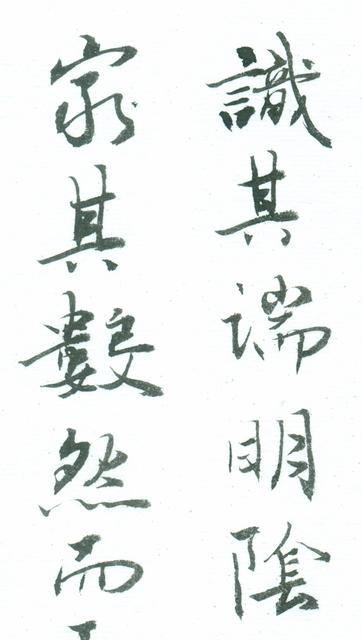 識其端明陰
窮其數然而